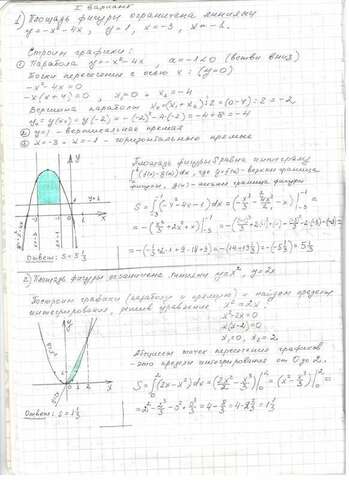 I Вариант
1) Площадь фигуры ограничена линиями
y=-x²-4x, y=1, x=-3, x=-1.
Строим графики:
① Парабола y=-x²-4x, a=-1<0 (ветви вниз)
Точки пересечения с осью x: (y=0)
-x²-4x=0
-x(x+4)=0, x₁=0 x₂=-4
Вершина параболы x₀=(x₁+x₂):2=(0-4):2=-2
y₀=y(x₀)=y(-2)=-(-2)²-4(-2)=-4+8=-4
② y=1 - вертикальная прямая
③ x=-3 и x=-1 - горизонтальные прямые
Площадь фигуры S равна интегралу
где y=f(x) - верхняя граница
фигуры, g(x) - нижняя граница фигуры
S=∫(-x²-4x-1)dx=(-x³/3-4x²/2-x)|
=-(x³/3+2x²+x)|
y
x
y=1
Ответ: S=5⅓
2) Площадь фигуры ограничена линиями y=x², y=2x
Построим графики (параболу и прямую) и найдём пределы
интегрирования, решив уравнение x²=2x
x²-2x=0
x(x-2)=0
x₁=0, x₂=2.
Абсциссы точек пересечения графиков
- это пределы интегрирования от 0 до 2.
S=∫(2x-x²)dx=(2x²/2-x³/3)|=(x²-x³/3)|
=2²-2³/3-0²+0³/3=4-8/3=4-2⅔=1⅓
y
x
y=x²
Ответ: S=1⅓